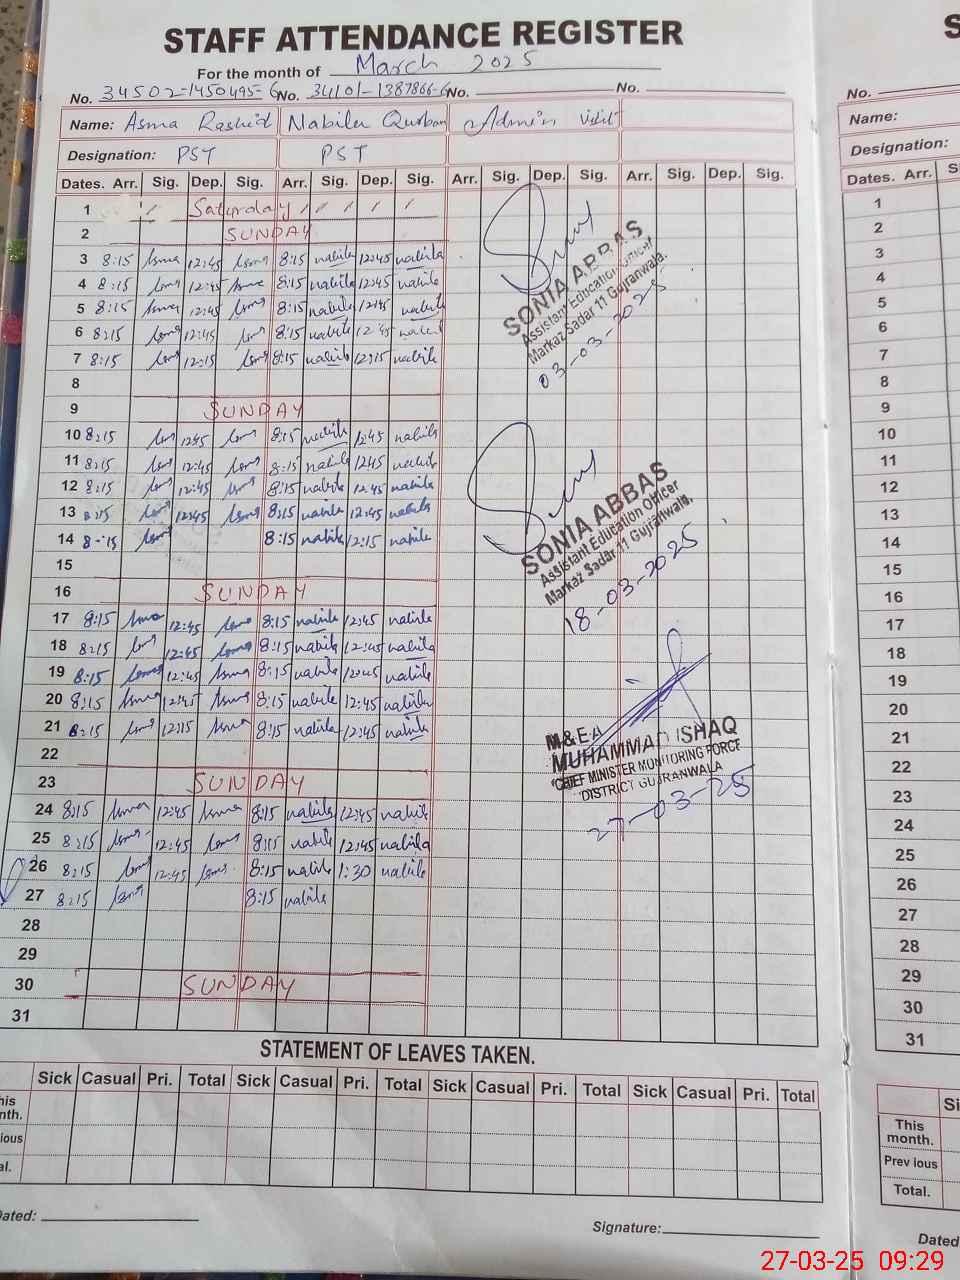 STAFF ATTENDANCE REGISTER
For the month of March 2025
No. 34502-1450495-6 No. 34101-1387866-6 No. No.
Name: Asma Rashid Nabila Qurban Admin visit
Designation: PST PST
Dates. Arr. Sig. Dep. Sig. Arr. Sig. Dep. Sig. Arr. Sig. Dep. Sig. Arr. Sig. Dep. Sig.
1 Saturday
2 SUNDAY
3 8:15 Asma 12:45 Asma 8:15 nabila 12:45 nabila
4 8:15 Asma 12:45 Asma 8:15 nabila 12:45 nabila
5 8:15 Asma 12:45 Asma 8:15 nabila 12:45 nabila
6 8:15 Asma 12:45 Asma 8:15 nabila 12:45 nabila
7 8:15 Asma 12:15 Asma 8:15 nabila 12:15 nabila
8
9 SUNDAY
10 8:15 Asma 12:45 Asma 8:15 nabila 12:45 nabila
11 8:15 Asma 12:45 Asma 8:15 nabila 12:45 nabila
12 8:15 Asma 12:45 Asma 8:15 nabila 12:45 nabila
13 8:15 Asma 12:45 Asma 8:15 nabila 12:45 nabila
14 8:15 Asma 8:15 nabila 12:15 nabila
15
16 SUNDAY
17 8:15 Asma 12:45 Asma 8:15 nabila 12:45 nabila
18 8:15 Asma 12:45 Asma 8:15 nabila 12:45 nabila
19 8:15 Asma 12:45 Asma 8:15 nabila 12:45 nabila
20 8:15 Asma 12:45 Asma 8:15 nabila 12:45 nabila
21 8:15 Asma 12:15 Asma 8:15 nabila 12:45 nabila
22
23 SUNDAY
24 8:15 Asma 12:45 Asma 8:15 nabila 12:45 nabila
25 8:15 Asma 12:45 Asma 8:15 nabila 12:45 nabila
26 8:15 Asma 12:45 Asma 8:15 nabila 1:30 nabila
27 8:15 Asma 8:15 nabila
28
29
30 SUNDAY
31
SONIA ABBAS
Assistant Education Officer
Markaz Sadar 11 Gujranwala.
03-03-2025
SONIA ABBAS
Assistant Education Officer
Markaz Sadar 11 Gujranwala.
18-03-2025
M&EA
MUHAMMAD ISHAQ
CHIEF MINISTER MONITORING FORCE
DISTRICT GUJRANWALA
27-03-25
STATEMENT OF LEAVES TAKEN.
Sick Casual Pri. Total Sick Casual Pri. Total Sick Casual Pri. Total Sick Casual Pri. Total
his
nth.
ious
al.
Dated:
Signature:
S
No.
Name:
Designation:
Dates. Arr. S
1
2
3
4
5
6
7
8
9
10
11
12
13
14
15
16
17
18
19
20
21
22
23
24
25
26
27
28
29
30
31
Si
This
month.
Prev ious
Total.
Dated
27-03-25 09:29